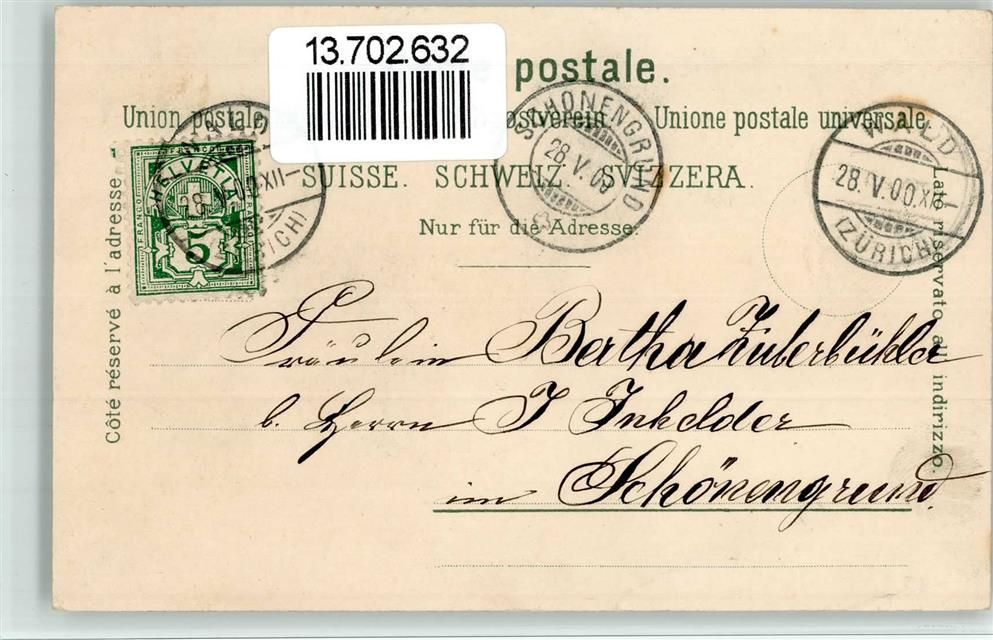 13.702.632
postale.
Union postale
postverein.
Unione postale universale.
SUISSE. SCHWEIZ. SVIZZERA.
Nur für die Adresse.
Côté réservé à l'adresse
Lato riservato all indirizzo.
HELVETIA
FRANCO
5
SCHÖNENGRUND
28.V.00
WALD
28.V.00.XII
(ZÜRICH)
Fräulein Bertha Zuberbühler
b. Herrn J Inhelder
im Schönengrund.